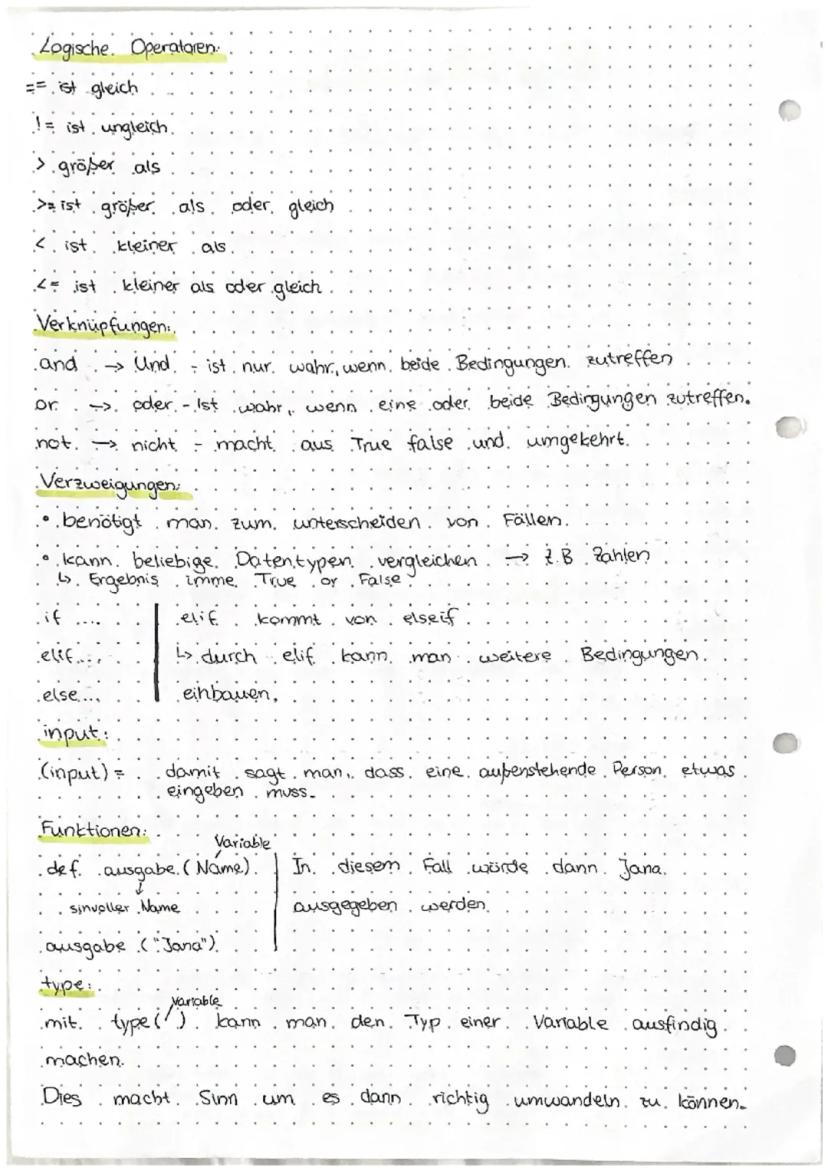 Logische Operatoren:
== ist gleich
!= ist ungleich
> größer als
>= ist größer als oder gleich
< ist kleiner als
<= ist kleiner als oder gleich
Verknüpfungen:
and → Und - ist nur wahr, wenn beide Bedingungen zutreffen
or → oder - Ist wahr, wenn eine oder beide Bedingungen zutreffen.
not → nicht - macht aus True false und umgekehrt.
Verzweigungen:
• benötigt man zum unterscheiden von Fällen.
• kann beliebige Datentypen vergleichen → z.B Zahlen
↳ Ergebnis imme True or False
if ... | elif kommt von elseif
elif... | ↳ durch elif kann man weitere Bedingungen
else... | einbauen.
input:
(input) = damit sagt man, dass eine außenstehende Person etwas
eingeben muss.
Funktionen:
Variable
def ausgabe (Name) | In diesem Fall würde dann Jana
↓
sinvoller Name | ausgegeben werden
ausgabe ("Jana")
type:
Variable
mit type( ) kann man den Typ einer Variable ausfindig
machen.
Dies macht Sinn um es dann richtig umwandeln zu können.